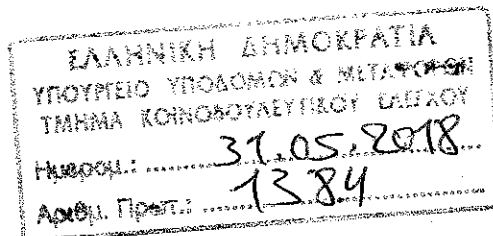 ΕΛΛΗΝΙΚΗ ΔΗΜΟΚΡΑΤΙΑ
ΥΠΟΥΡΓΕΙΟ ΥΠΟΔΟΜΩΝ & ΜΕΤΑΦΟΡΩΝ
ΤΜΗΜΑ ΚΟΙΝΟΒΟΥΛΕΥΤΙΚΟΥ ΕΛΕΓΧΟΥ
Ημερομ.: 31.05.2018
Αριθμ. Πρωτ.: 1384